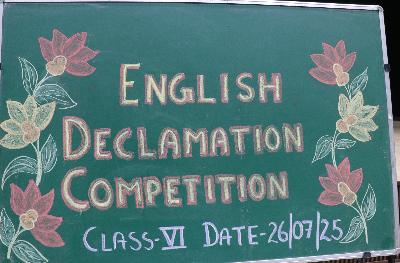 ENGLISH
DECLAMATION
COMPETITION
CLASS-VI DATE-26/07/25